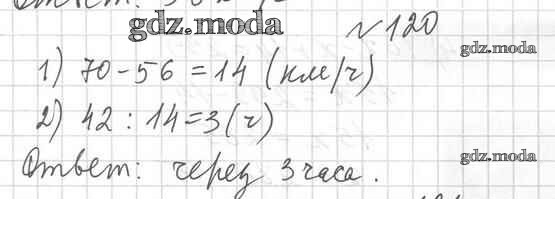 gdz.moda
№ 120
gdz.moda
1) 70-56=14 (км/ч)
2) 42 : 14=3(ч)
Ответ: через 3 часа.
gdz.moda